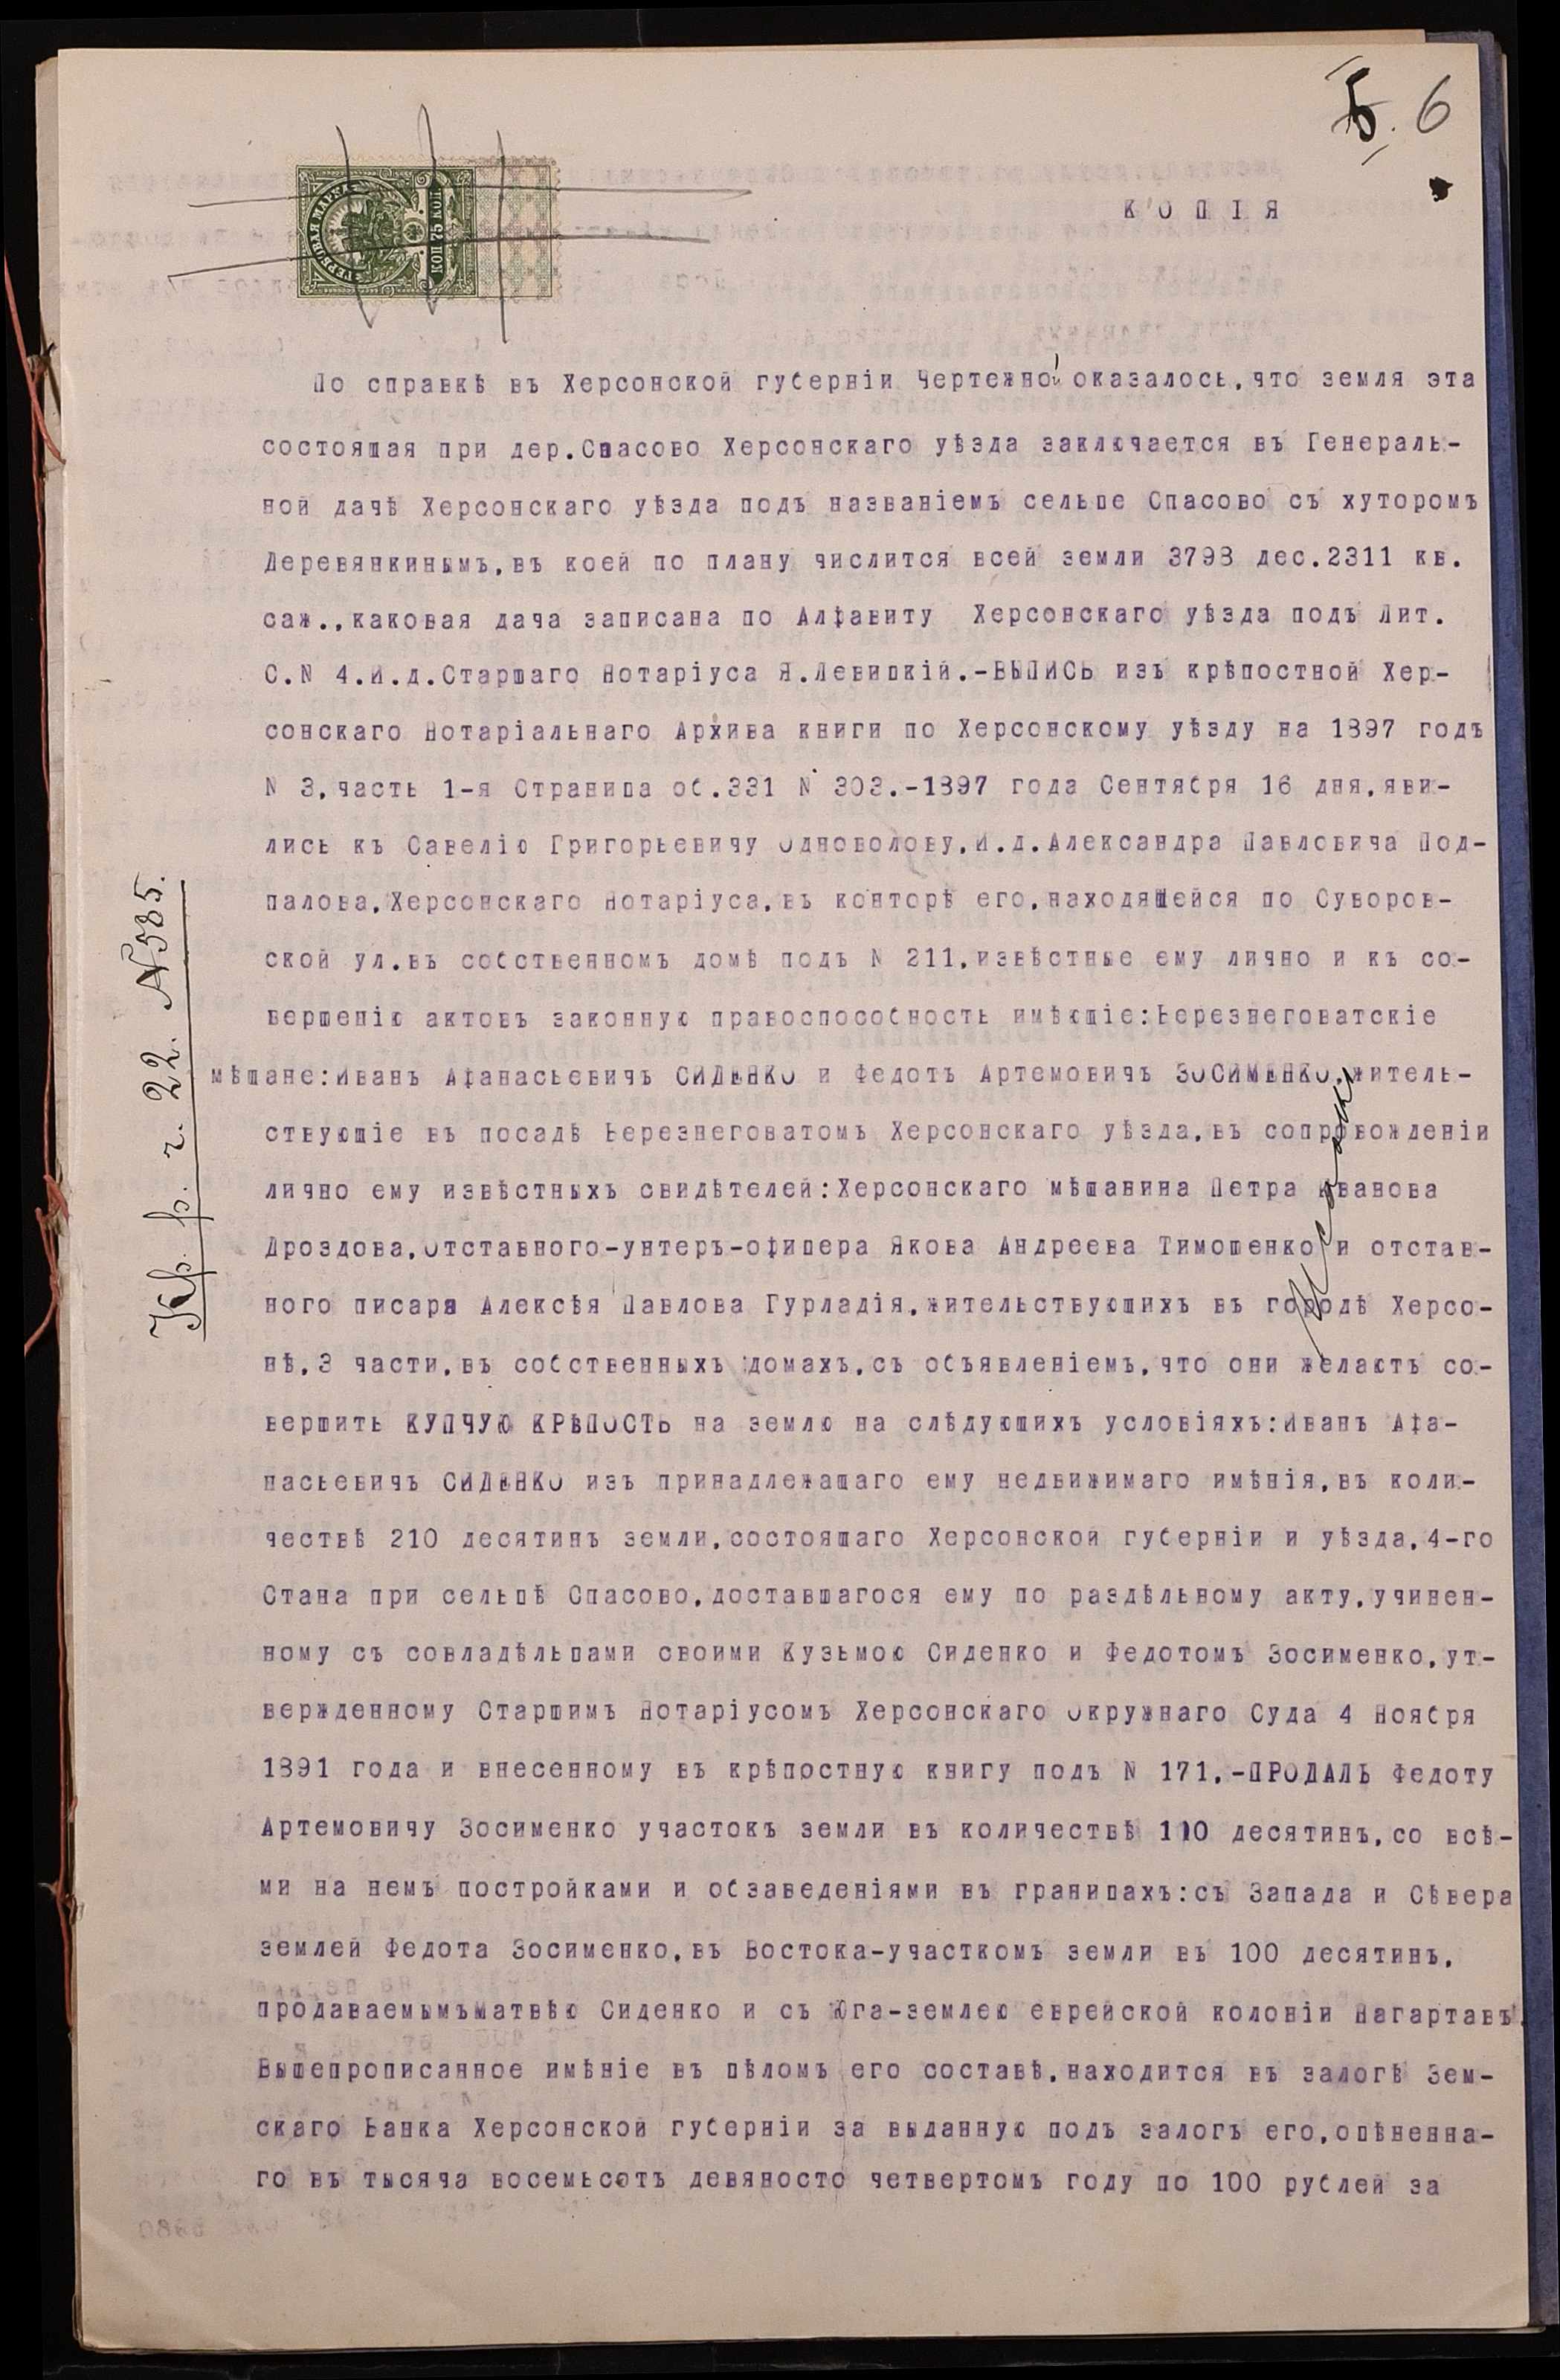 Б. 6
КОПІЯ
ГЕРБОВАЯ МАРКА
КОП 75 КОП
По справкѣ въ Херсонской губерніи Чертежной оказалось,что земля эта
состоящая при дер.Спасово Херсонскаго уѣзда заключается въ Генераль-
ной дачѣ Херсонскаго уѣзда подъ названіемъ сельце Спасово съ хуторомъ
Деревянкинымъ,въ коей по плану числится всей земли 3798 дес.2311 кв.
саж.,каковая дача записана по Алфавиту Херсонскаго уѣзда подъ Лит.
С.N 4.И.д.Старшаго Нотаріуса Я.Левицкій.-ВЫПИСЬ изъ крѣпостной Хер-
сонскаго Нотаріальнаго Архива книги по Херсонскому уѣзду на 1897 годъ
N 3,часть 1-я Страница об.331 N 303.-1897 года Сентября 16 дня,яви-
лись къ Савелію Григорьевичу Одноволову,И.д.Александра Павловича Под-
палова,Херсонскаго Нотаріуса,въ конторѣ его,находящейся по Суворов-
ской ул.въ собственномъ домѣ подъ N 211,извѣстные ему лично и къ со-
вершенію актовъ законную правоспособность имѣющіе:Березнеговатскіе
мѣщане:Иванъ Афанасьевичъ СИДЕНКО и Федотъ Артемовичъ ЗОСИМЕНКО,житель-
ствующіе въ посадѣ Березнеговатомъ Херсонскаго уѣзда,въ сопровожденіи
лично ему извѣстныхъ свидѣтелей:Херсонскаго мѣщанина Петра Иванова
Дроздова,Отставного-унтеръ-офицера Якова Андреева Тимошенко и отстав-
ного писаря Алексѣя Павлова Гурладія,жительствующихъ въ городѣ Херсо-
нѣ,3 части,въ собственныхъ домахъ,съ объявленіемъ,что они желаютъ со-
вершить КУПЧУЮ КРѢПОСТЬ на землю на слѣдующихъ условіяхъ:Иванъ Афа-
насьевичъ СИДЕНКО изъ принадлежащаго ему недвижимаго имѣнія,въ коли-
чествѣ 210 десятинъ земли,состоящаго Херсонской губерніи и уѣзда,4-го
Стана при сельцѣ Спасово,доставшагося ему по раздѣльному акту,учинен-
ному съ совладѣльцами своими Кузьмою Сиденко и Федотомъ Зосименко,ут-
вержденному Старшимъ Нотаріусомъ Херсонскаго Окружнаго Суда 4 Ноября
1891 года и внесенному въ крѣпостную книгу подъ N 171,-ПРОДАЛЪ Федоту
Артемовичу Зосименко участокъ земли въ количествѣ 110 десятинъ,со всѣ-
ми на немъ постройками и обзаведеніями въ границахъ:съ Запада и Сѣвера
землей Федота Зосименко,въ Востока-участкомъ земли въ 100 десятинъ,
продаваемымъМатвѣю Сиденко и съ Юга-землею еврейской колоніи Нагартавъ.
Вышепрописанное имѣніе въ цѣломъ его составѣ,находится въ залогѣ Зем-
скаго Банка Херсонской губерніи за выданную подъ залогъ его,оцѣненна-
го въ тысяча восемьсотъ девяносто четвертомъ году по 100 рублей за
Кр. р. г. 22. №385.